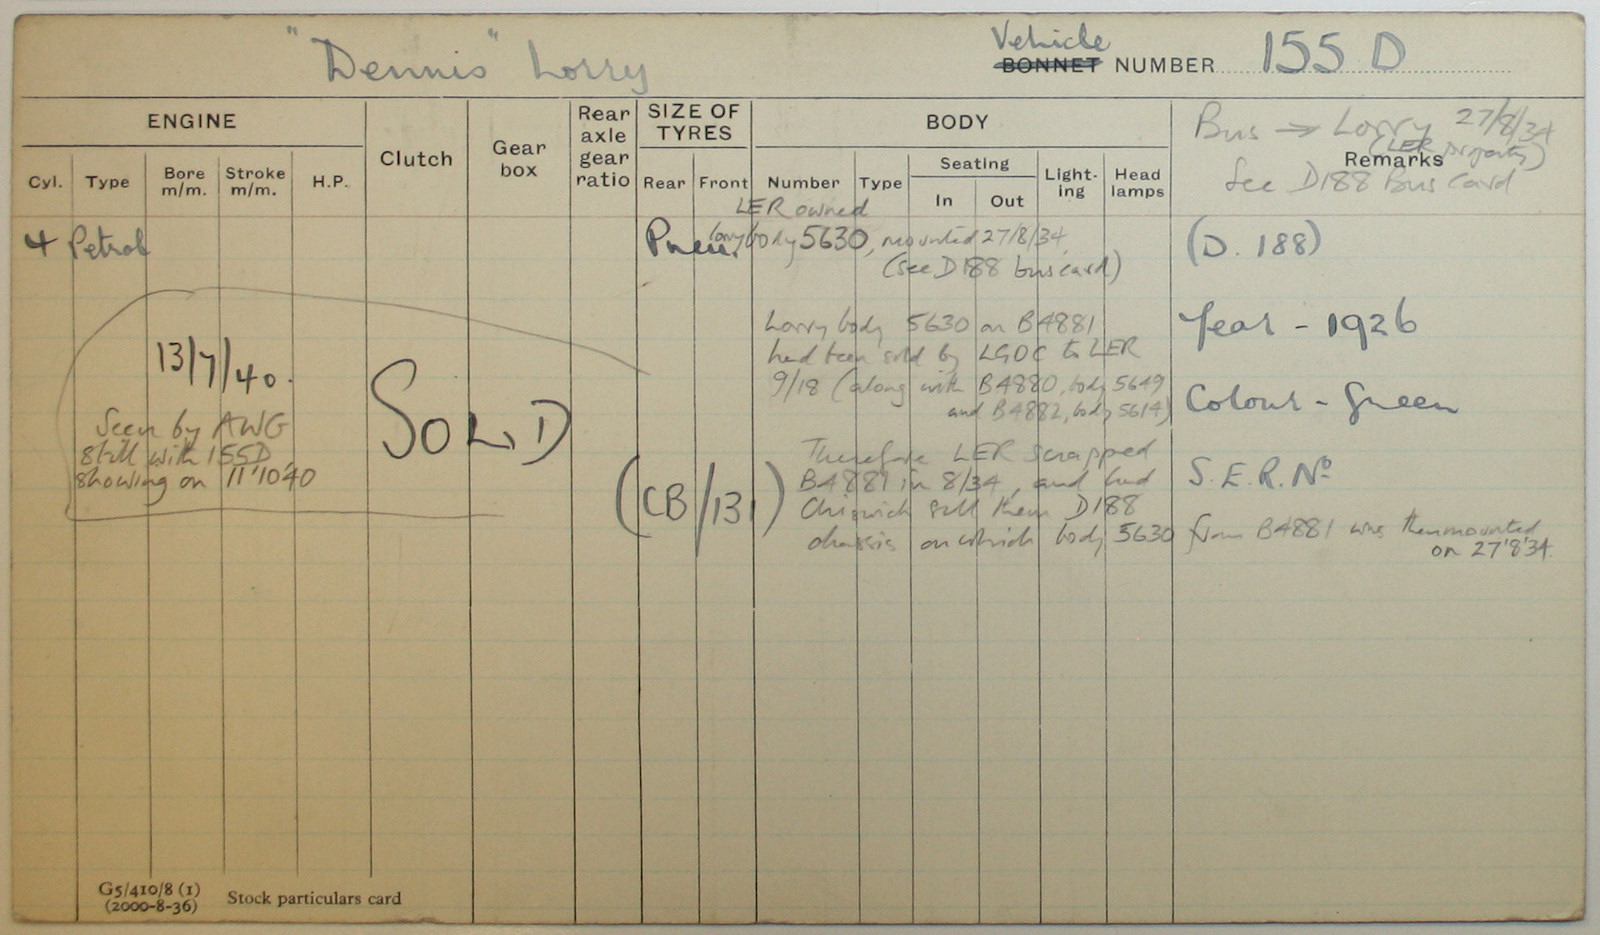 "Dennis" Lorry
Vehicle
BONNET NUMBER 155 D
ENGINE
Clutch
Gear box
Rear axle gear ratio
SIZE OF TYRES
BODY
Bus → Lorry 27/8/34
(LER property)
Remarks
See D188 Bus Card
Cyl. Type Bore m/m. Stroke m/m. H.P.
Rear Front
Number Type Seating In Out Light-ing Head lamps
LER owned
4 Petrol Pneu. lorry body 5630, mounted 27/8/34
(see D188 bus card)
(D. 188)
Lorry body 5630 on B4881
had been sold by LGOC to LER
9/18 (along with B4880, body 5649
and B4882, body 5614)
Year - 1926
Colour - Green
13/7/40.
SOLD
Seen by AWG
still with 155D
showing on 11'10'40
(CB/131)
Therefore LER scrapped
B4881 in 8/34, and had
Chiswick sell them D188
chassis on which body 5630 from B4881 was then mounted
on 27'8'34.
S.E.R. No
G5/410/8 (1)
(2000-8-36)
Stock particulars card